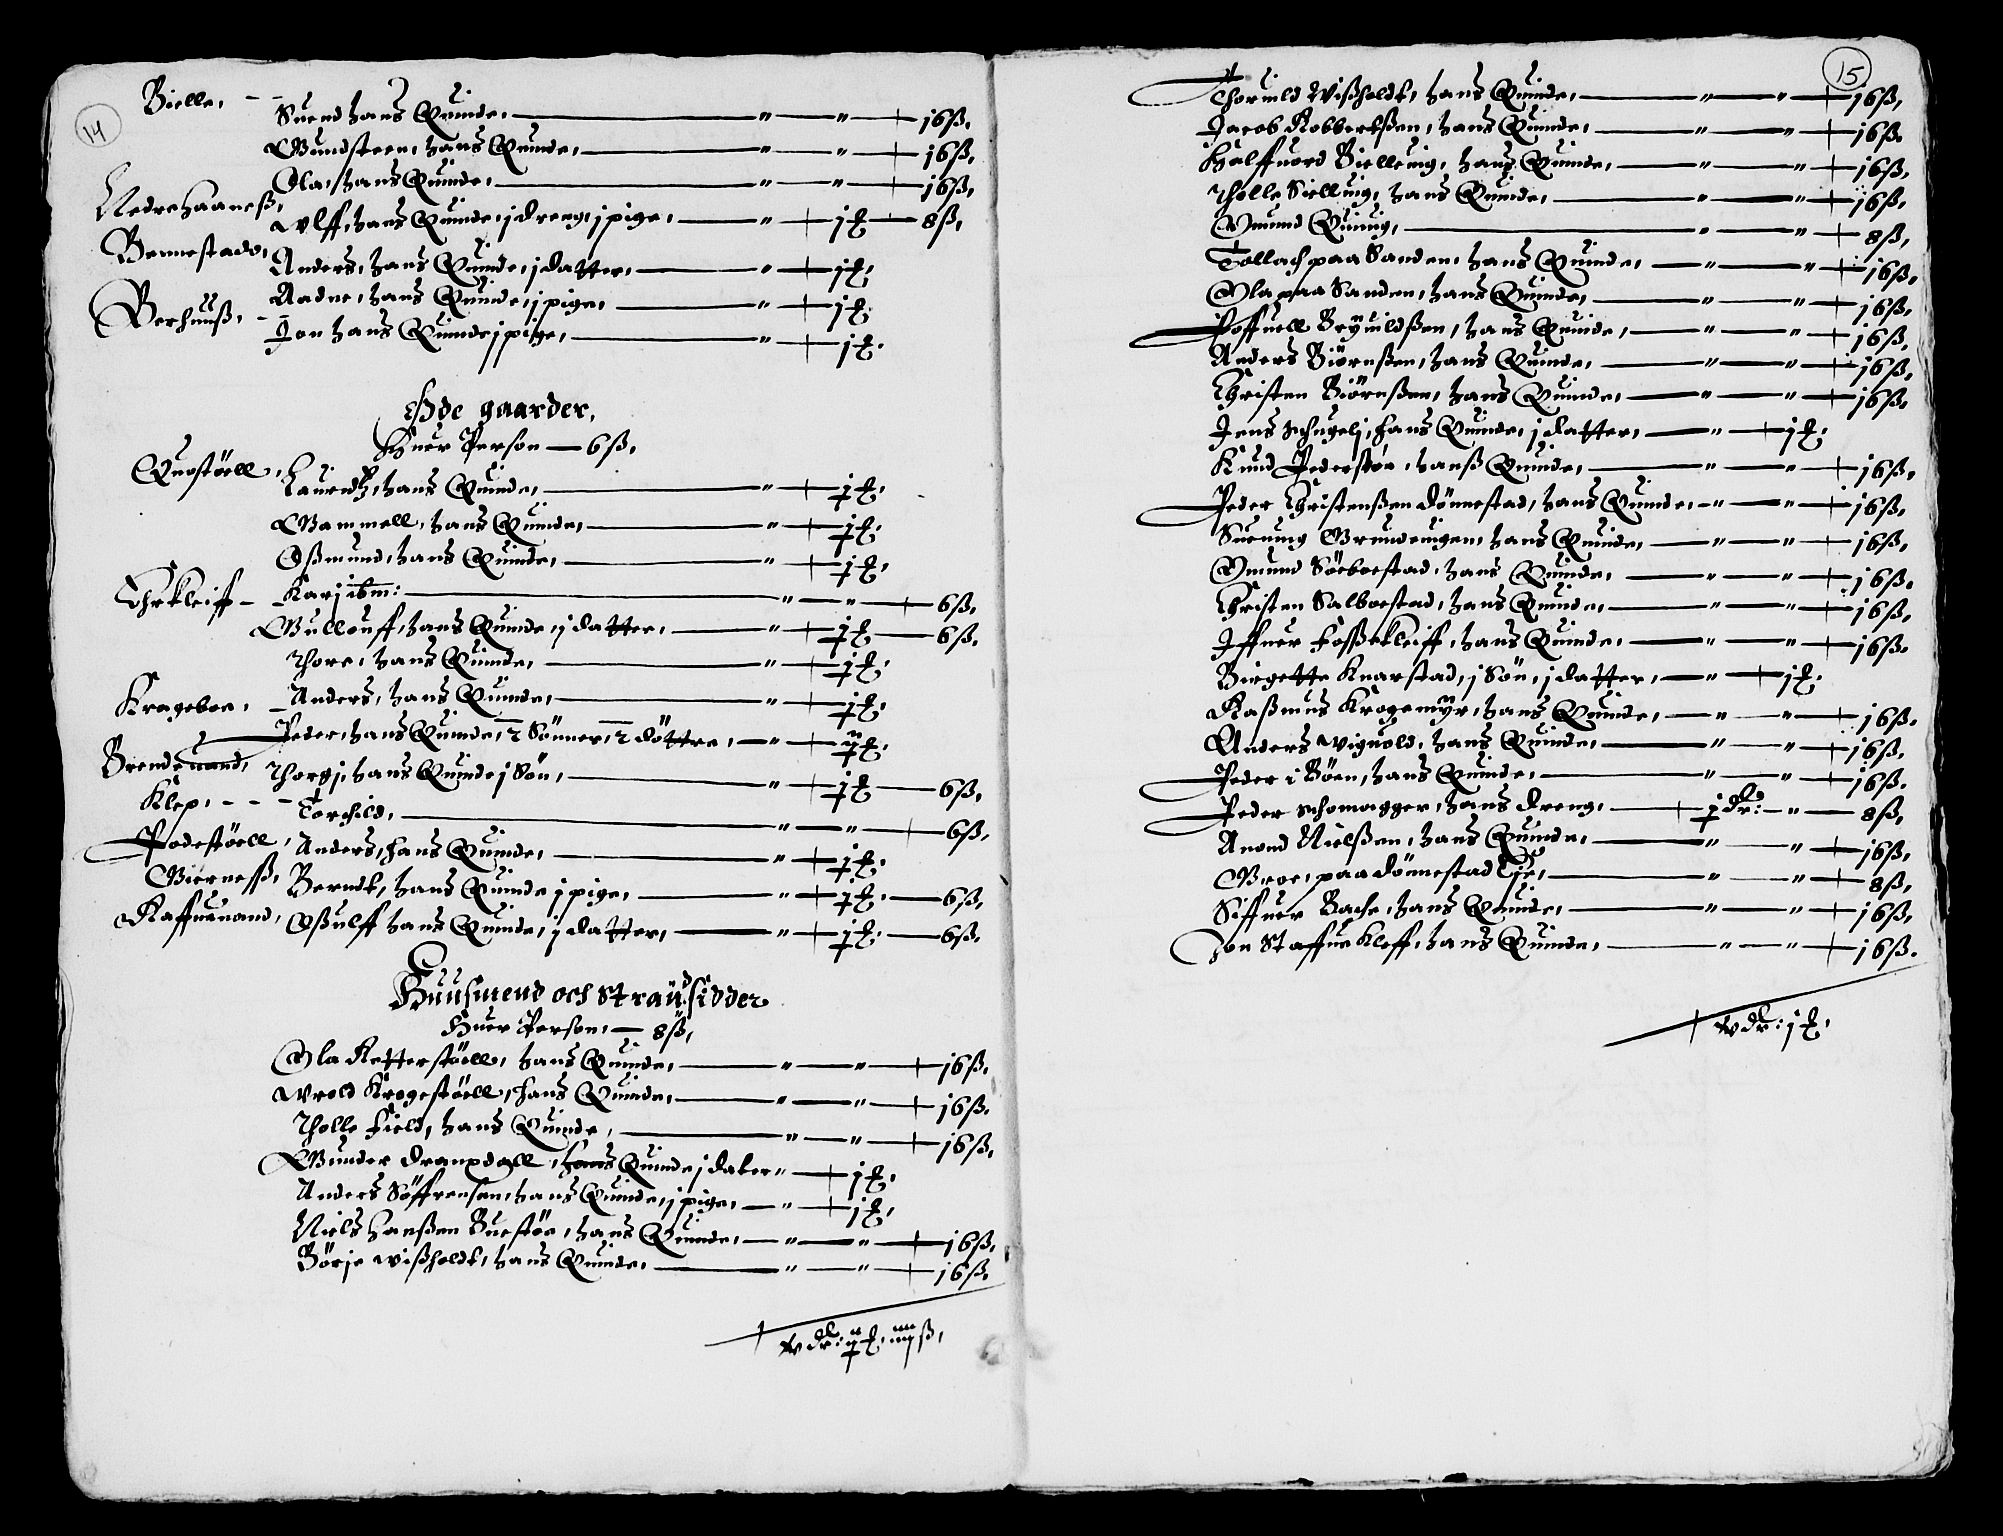 14
Bielle, - - Suend hans Quinde, — " — " — 16ß,
Gundsteen, hans Quinde, — " — " — 16ß,
Ola, hans Quinde, — " — " — 16ß,
Nedrehaaneß, Vlff, hans Quinde, j dreng, j pige, — " — j ₰ — 8ß,
Bennestadt, Anders, hans Quinde, j datter, — " — j ₰,
Berhuuß, - Aadne, hans Quinde, j pige, — " — j ₰,
Jon hans Quinde j pige, — " — j ₰,
Øde gaarder,
Huer Person — 6ß,
Quostöell, Lauridtz, hans Quinde, — " — j ₰,
Gammell, hans Quinde, — " — j ₰,
Oßmund, hans Quinde, — " — j ₰,
Ehrkleiff - Karj ibm: — " — " — 6ß,
Gullouff, hans Quinde, j datter, — " — j ₰ — 6ß,
Thore, hans Quinde, — " — j ₰,
Krageboe, - Anders, hans Quinde, — " — j ₰,
Peder, hans Quinde, 2 Sönner, 2 döttre, — " — ij ₰,
Brendeuand, Thorgj, hans Quinde j Sön, — " — j ₰ — 6ß,
Klep, - - - Torchild, — " — " — 6ß,
Podestöell, Anders, hans Quinde, — " — j ₰,
Gierneß, Berndt, hans Quinde j pige, — " — j ₰, — 6ß,
Raffneuand, Oßulff hans Quinde, j datter, — " — j ₰, — 6ß,
Huusmend och Strandsidder
Huer Person, — 8ß,
Ola Ketterstöell, hans Quinde, — " — " — 16ß,
Vrold Krogestöell, hans Quinde, — " — " — 16ß,
Tholle Field, hans Quinde, — " — " — 16ß,
Gunder Drangdall, hans Quinde j dater " — j ₰,
Anders Söffrensen, hans Quinde, j pige, — " — j ₰,
Niels Hanßen Buestöe, hans Quinde, — " — " — 16ß,
Börje Vißholdt, hans Quinde, — " — " — 16ß,
v dlr: ij ₰, iiij ß,
15
Thoruild Vißholdt, hans Quinde, — " — " — 16ß,
Jacob Robbertßen, hans Quinde, — " — " — 16ß,
Halffuord Bielluig, hans Quinde, — " — " — 16ß,
Tholle Sielluig, hans Quinde, — " — " — 16ß,
Omund Quiuig, — " — " — 8ß,
Tollach paa Sanden, hans Quinde, — " — " — 16ß,
Ola paa Sanden, hans Quinde, — " — " — 16ß,
Poffuell Brÿnildßen, hans Quinde, — " — " — 16ß,
Anders Biörnßen, hans Quinde, — " — " — 16ß,
Christen Biörnßen, hans Quinde, — " — " — 16ß,
Jens Schugelj, hans Quinde, j datter, — " — j ₰,
Knud Pederstöe, hanß Quinde, — " — " — 16ß,
Peder Christenßen dönnestad, hans Quinde, - " — " — 16ß,
Suenung Grundeuigen, hans Quinde, — " — " — 16ß,
Omund Söeboestad, hans Quinde, — " — " — 16ß,
Christen Salboestad, hans Quinde, — " — " — 16ß,
Iffuer Foßßekleiff, hans Quinde, — " — " — 16ß,
Birgette Knarstad, j Sön, j datter, — " — j ₰,
Raßmus Krogemÿr, hans Quinde, — " — " — 16ß,
Anders Vignold, hans Quinde, — " — " — 16ß,
Peder i Böen, hans Quinde, — " — " — 16ß,
Peder Schomagger, hans dreng, — j dlr: - " — 8ß,
Anond Nielßen, hans Quinde, — " — " — 16ß,
Groe, paa dönnestad Eje, — " — " — 8ß,
Siffuer Bache, hans Quinde, — " — " — 16ß,
Jon Staffnekleff, hans Quinde, — " — " — 16ß,
v dlr: j ₰,